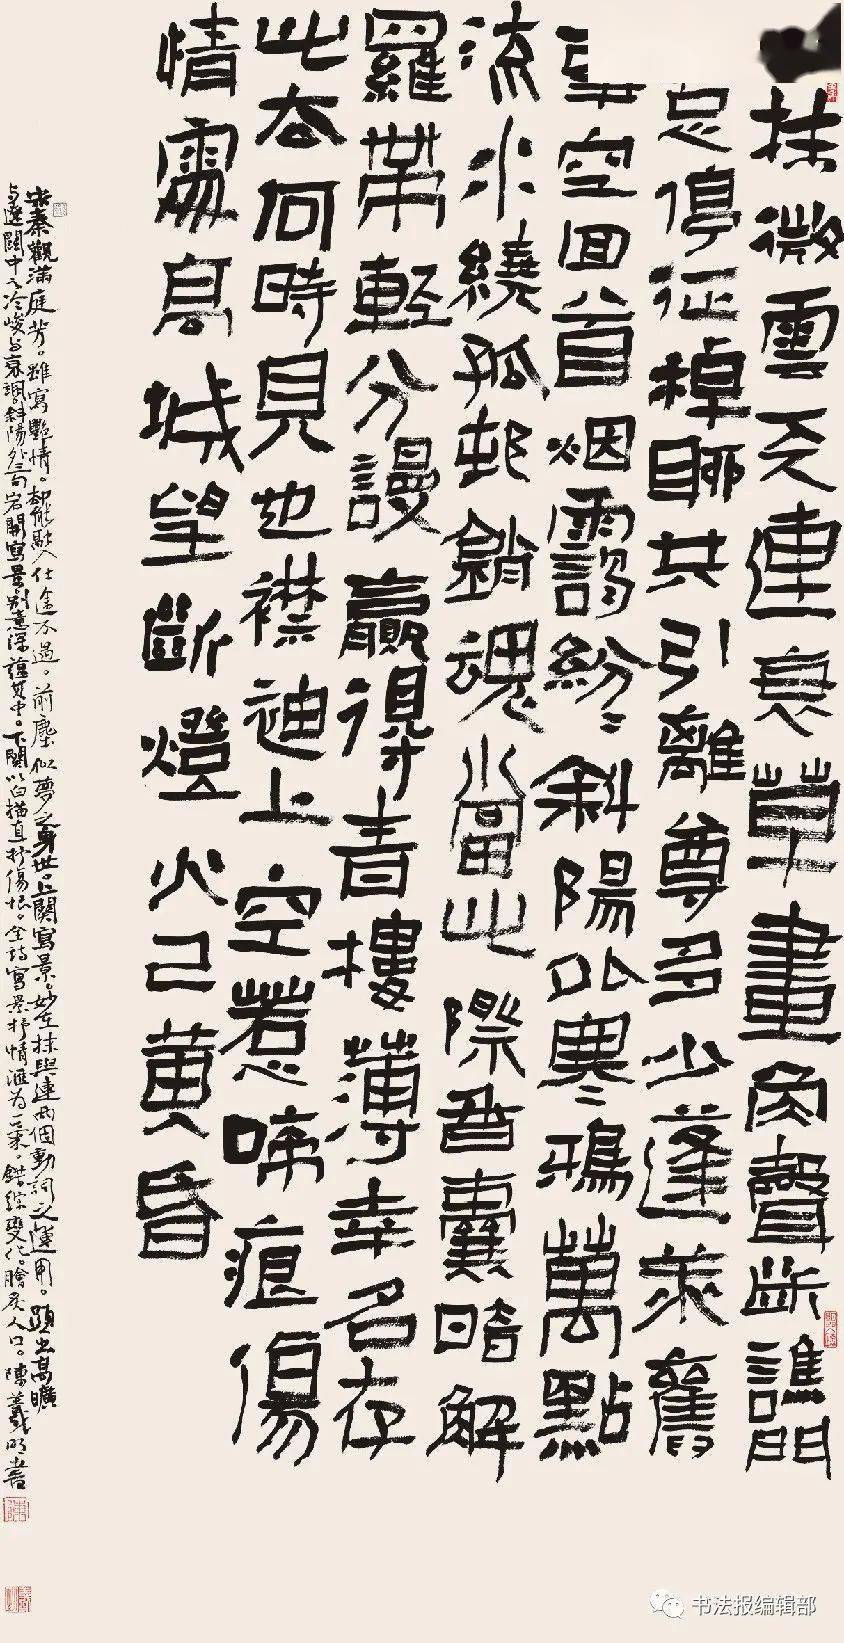 抹微雲天連衰草畫角聲斷譙門
停征棹聊共引離尊多少蓬萊舊
事空回首烟靄紛〻斜陽外寒鴉萬點
流水繞孤邨銷魂當此際香囊暗解
羅帶輕分謾贏得青樓薄幸名存
此去何時見也襟袖上空惹啼痕傷
情處高城望斷燈火已黃昏
宋秦觀滿庭芳。雖寫艷情。却能融入仕途不遇。前塵似夢之身世。上闋寫景。妙在抹與連兩個動詞之運用。顯出高曠
与遼闊中之冷峻与衰颯。斜陽外三句宕開寫景。別意深蘊其中。下闋以白描直抒傷懷。全詩寫景抒情滙为一氣。錯綜變化。膾炙人口。陳羲明書
书法报编辑部